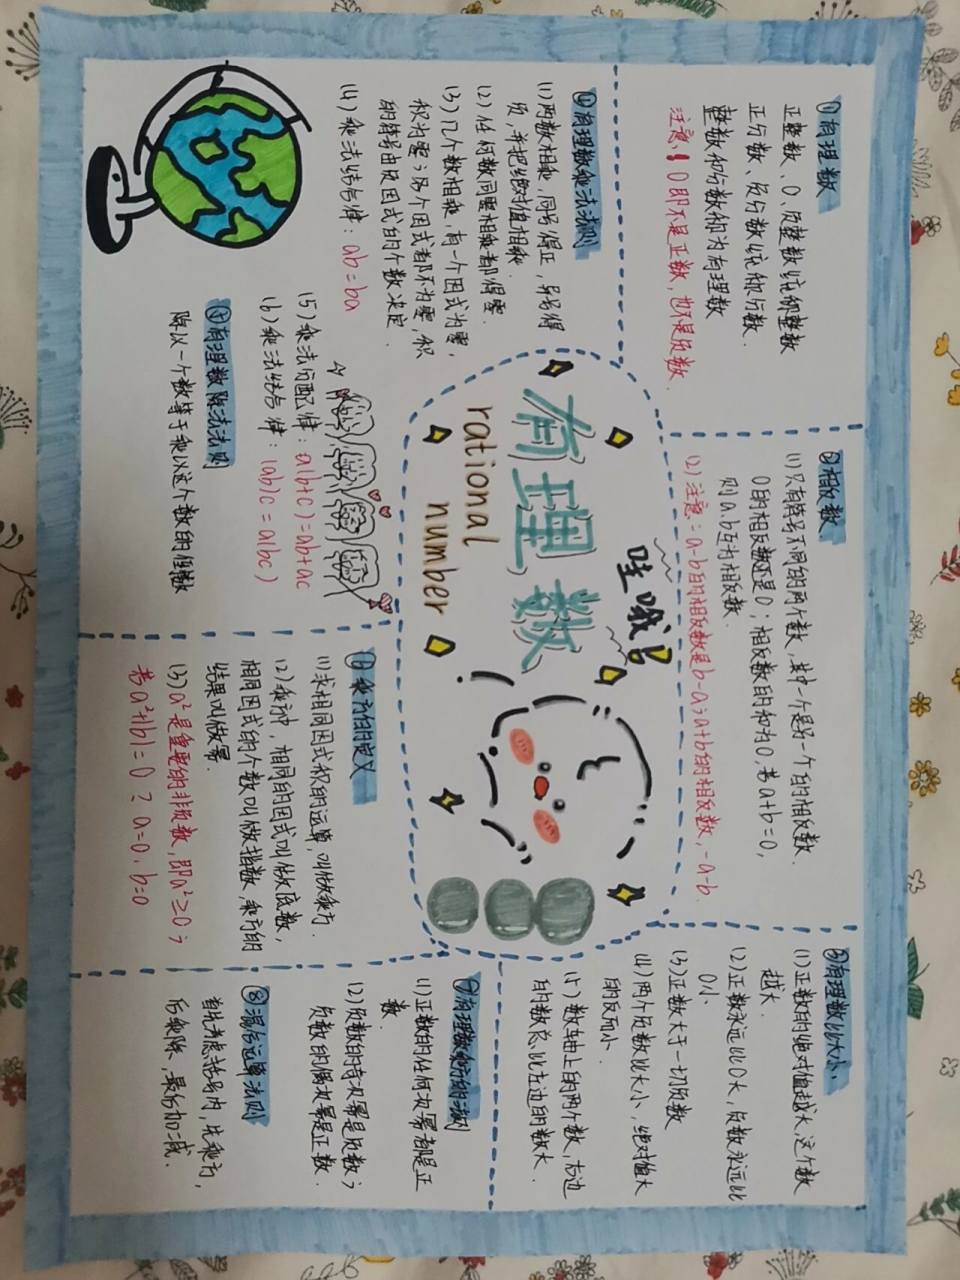 ①有理数
正整数、0、负整数统称整数
正分数、负分数统称分数.
整数和分数称为有理数
注意！0即不是正数，也不是负数.
②相反数
(1)只有符号不同的两个数，其中一个是另一个的相反数、
0的相反数还是0；相反数的和为0，若a+b=0，
则a.b互为相反数.
(2)注意：a-b的相反数是b-a；a+b的相反数，-a-b.
③有理数比大小：
(1)正数的绝对值越大，这个数
越大.
(2)正数永远比0大，负数永远比
0小.
(3)正数大于一切负数
(4)两个负数比大小，绝对值大
的反而小.
(5)数轴上的两个数，右边
的数总比左边的数大
哇哦！
有理数
rational
number
④有理数乘法法则
(1)两数相乘，同号得正，异号得
负，并把绝对值相乘.
(2)任何数同零相乘都得零.
(3)几个数相乘，有一个因式为零，
积为零；各个因式都不为零，积
的符号由负因式的个数决定.
(4)乘法结合律：ab=ba
(5)乘法分配律：a(b+c)=ab+ac
(6)乘法结合律：(ab)c=a(bc)
有理数除法法则
除以一个数等于乘以这个数的倒数
乘方的定义
(1)求相同因式积的运算，叫做乘方.
(2)乘方中，相同的因式叫做底数，
相同因式的个数叫做指数，乘方的
结果叫做幂.
(3)a²是重要的非负数，即a²≥0；
若a²+|b|=0 ? a=0，b=0
⑦有理数乘方的法则
(1)正数的任何次幂都是正
数.
(2)负数的奇次幂是负数；
负数的偶次幂是正数.
⑧混合运算法则
首先考虑括号内，先乘方，
后乘除，最后加减.